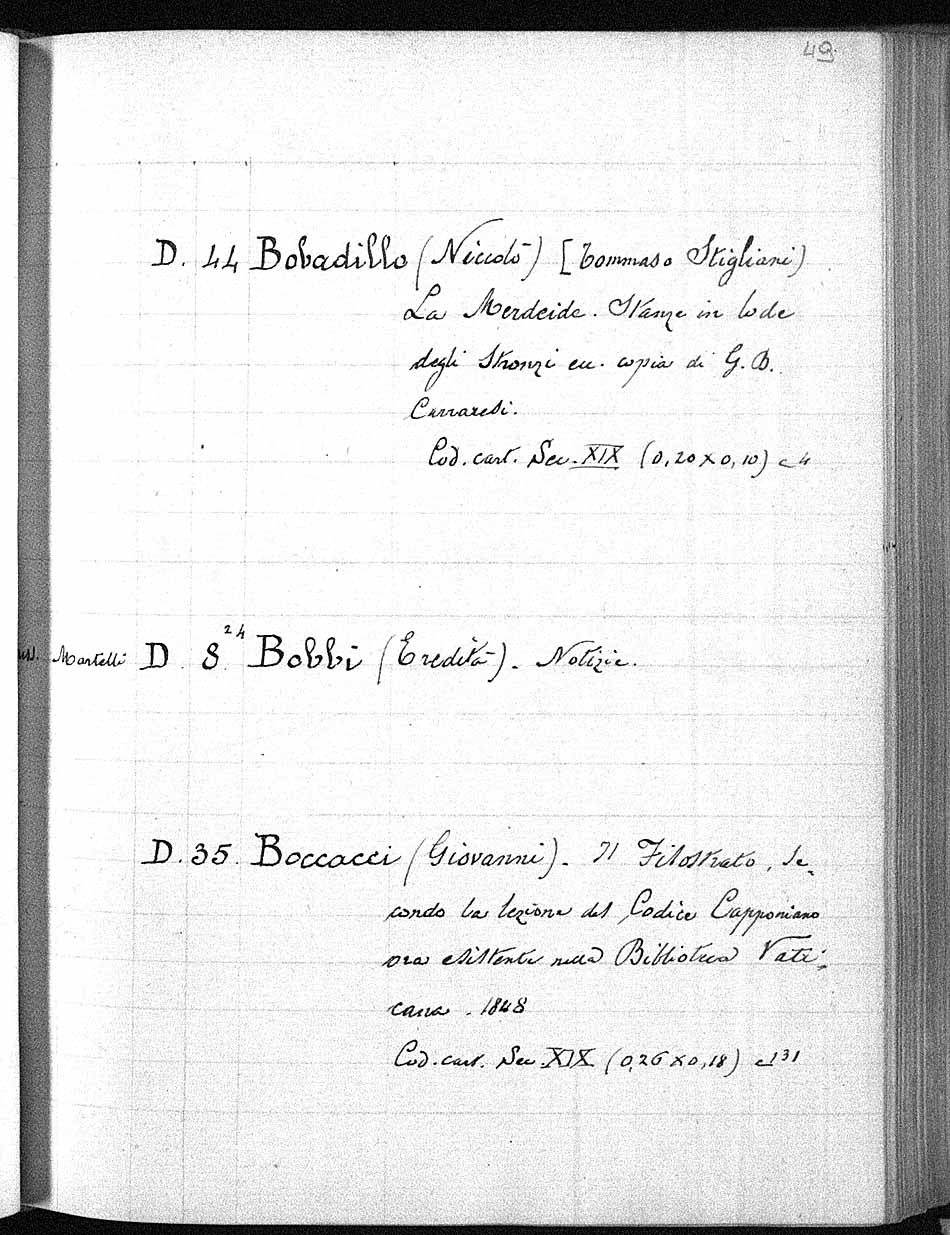 49
D. 44 Bobadillo (Niccolò) [Tommaso Stigliani)
La Merdeide. Stanze in lode
degli Stronzi ecc. copia di G. B.
Carraresi.
Cod. cart. Sec. XIX (0,20 x 0,10) c 4
Martelli D. 8. 24 Bobbi (Eredità). Notizie.
D. 35. Boccacci (Giovanni). Il Filostrato, se-
condo la lezione del Codice Capponiano
ora esistente nella Biblioteca Vati-
cana. 1848
Cod. cart. Sec. XIX (0,26 x 0,18) c 131